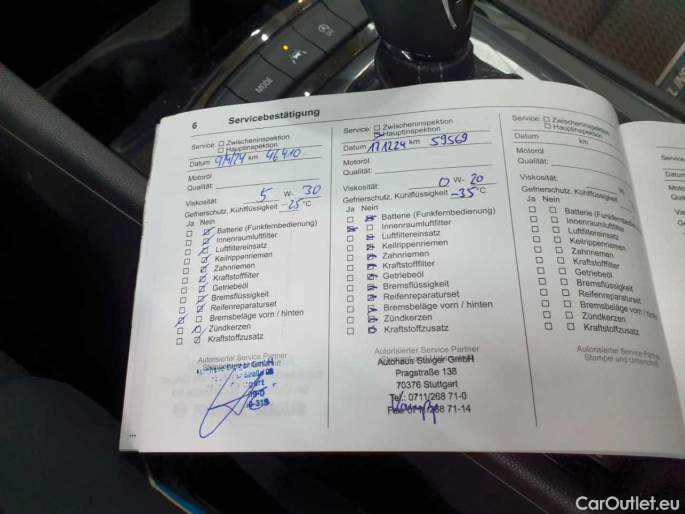 MODE
6 Servicebestätigung
Service: Zwischeninspektion
Hauptinspektion
Datum 9/4/24 km 46410
Motoröl
Qualität:
Viskosität: 5 W- 30
Gefrierschutz, Kühlflüssigkeit -25 °C
Ja Nein
Batterie (Funkfernbedienung)
Innenraumluftfilter
Luftfiltereinsatz
Keilrippenriemen
Zahnriemen
Kraftstofffilter
Getriebeöl
Bremsflüssigkeit
Reifenreparaturset
Bremsbeläge vorn / hinten
Zündkerzen
Kraftstoffzusatz
Autorisierter Service Partner
GmbH
Service: Zwischeninspektion
Hauptinspektion
Datum 171224 km 59569
Motoröl
Qualität:
Viskosität: 0 W- 20
Gefrierschutz, Kühlflüssigkeit -35 °C
Ja Nein
Batterie (Funkfernbedienung)
Innenraumluftfilter
Luftfiltereinsatz
Keilrippenriemen
Zahnriemen
Kraftstofffilter
Getriebeöl
Bremsflüssigkeit
Reifenreparaturset
Bremsbeläge vorn / hinten
Zündkerzen
Kraftstoffzusatz
Autorisierter Service Partner
Autohaus Staiger GmbH
Pragstraße 138
70376 Stuttgart
Tel.: 0711/268 71-0
Fax: 0711/268 71-14
Service: Zwischeninspektion
Hauptinspektion
Datum km
Motoröl
Qualität:
Viskosität: W-
Gefrierschutz, Kühlflüssigkeit
Ja Nein
Batterie (Funkfernbedienung)
Innenraumluftfilter
Luftfiltereinsatz
Keilrippenriemen
Zahnriemen
Kraftstofffilter
Getriebeöl
Bremsflüssigkeit
Reifenreparaturset
Bremsbeläge vorn /
Zündkerzen
Kraftstoffzusatz
Autorisierter Service Partner
Stempel und Unterschrift
Service:
Datum
Motoröl
Qualität:
CarOutlet.eu